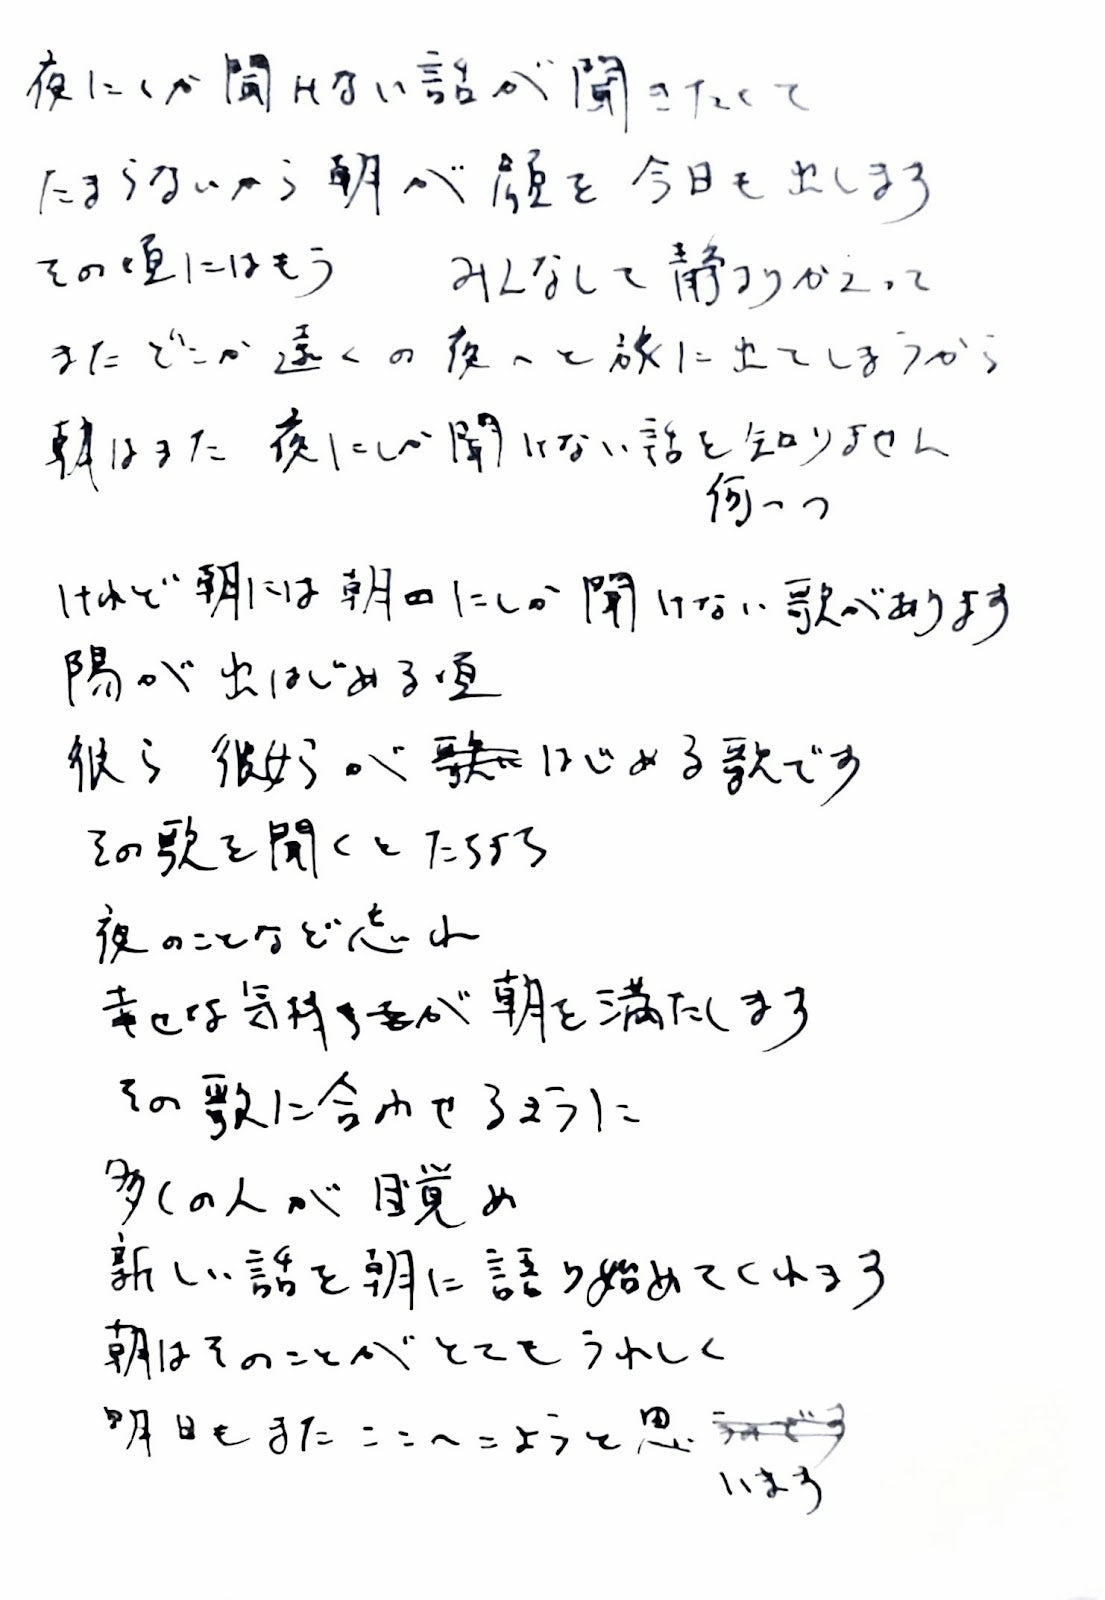 夜にしか聞けない話が聞きたくて
たまらないから朝が顔を今日も出します
その頃にはもう　みんなして静まりかえって
またどこか遠くの夜へと旅に出てしまうから
朝はまた　夜にしか聞けない話を知りません
何一つ
けれど朝には朝にしか聞けない歌があります
陽が出はじめる頃
彼ら　彼女らがはじめる歌です
その歌を聞くとたちまち
夜のことなど忘れ
幸せな気持ちが朝を満たします
その歌に合わせるように
多くの人が目覚め
新しい話を朝に語り始めてくれます
朝はそのことがとてもうれしく
明日もまたここへこようと思
います